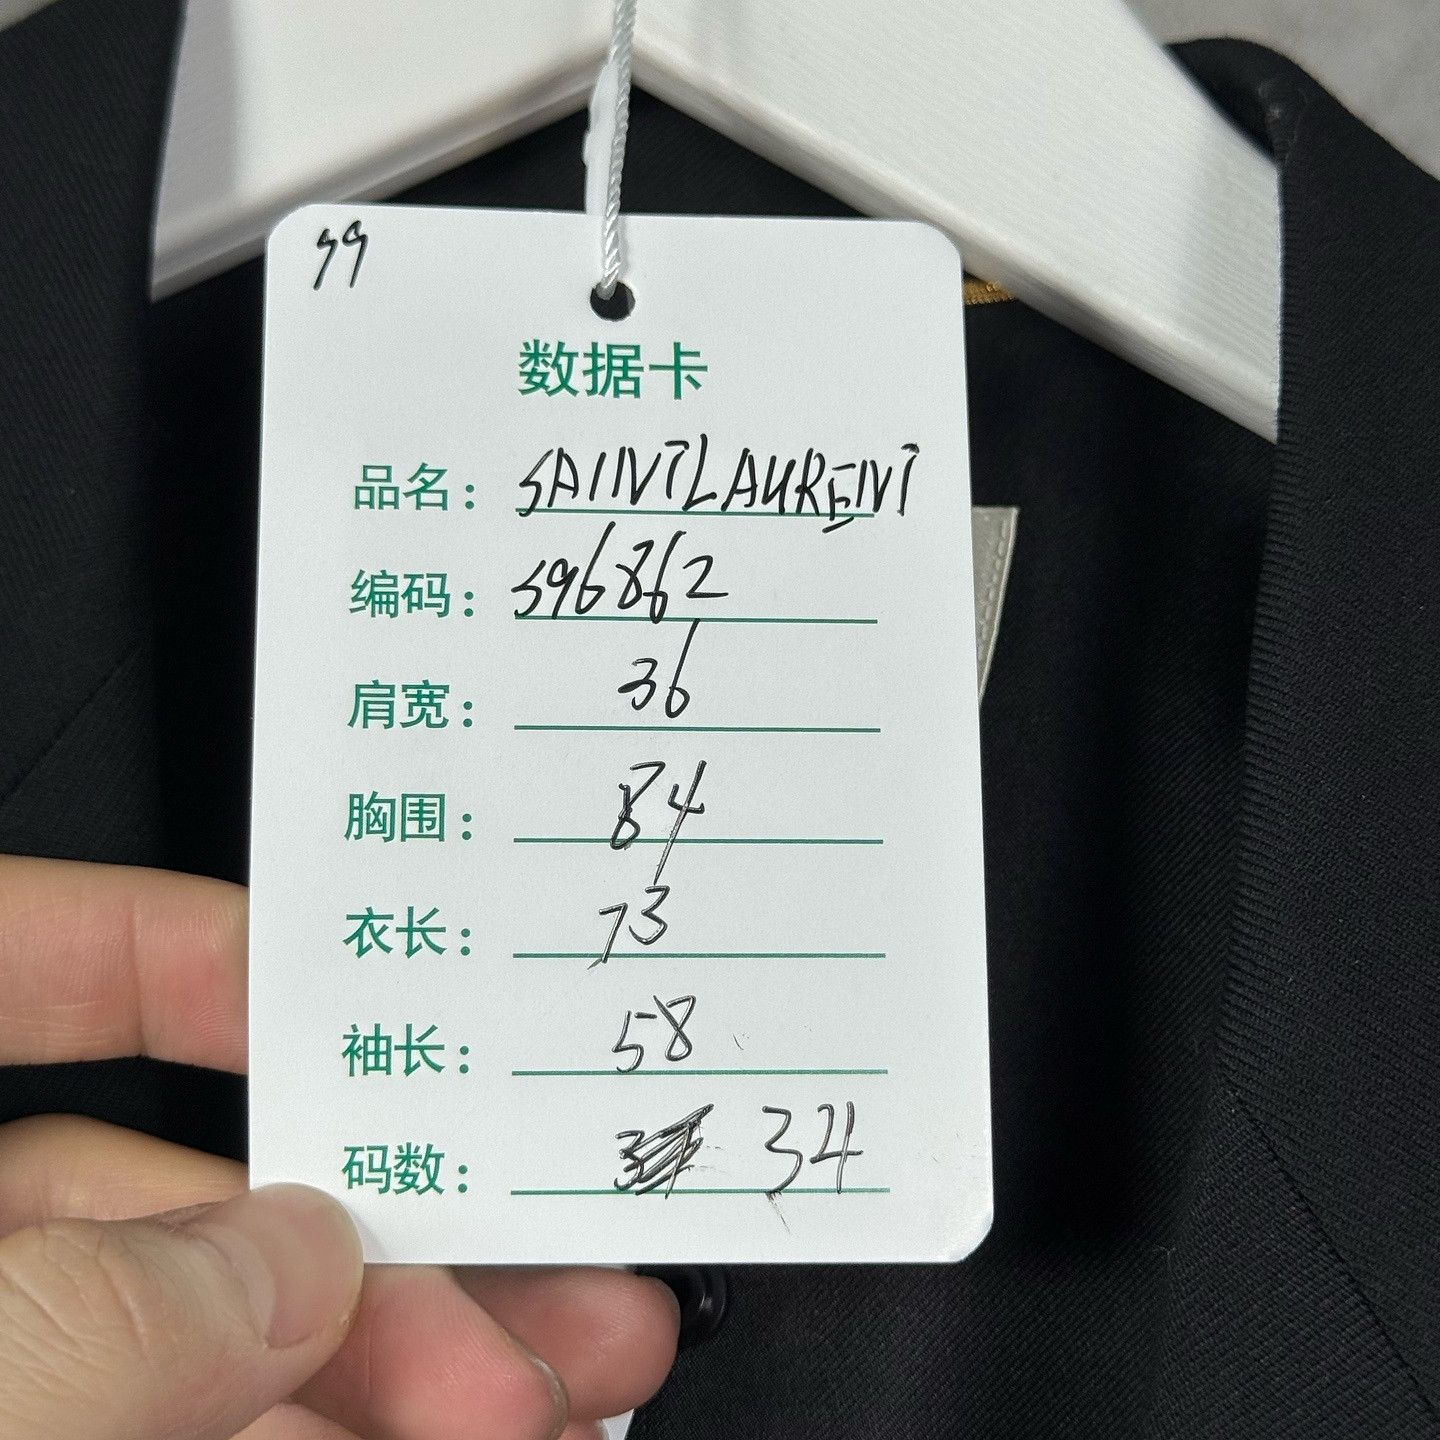 59
数据卡
品名: SAINT LAURENT
编码: 596862
肩宽: 36
胸围: 84
衣长: 73
袖长: 58
码数: 34